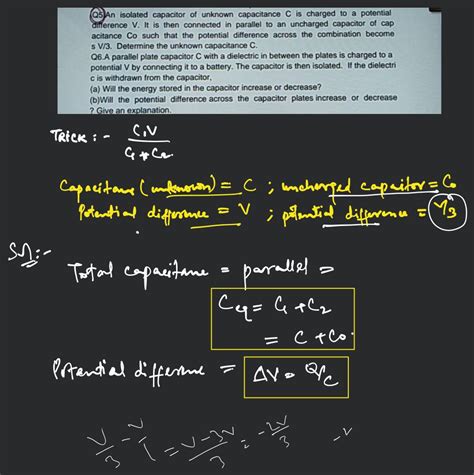 Q5)An isolated capacitor of unknown capacitance C is charged to a potential
difference V. It is then connected in parallel to an uncharged capacitor of cap
acitance Co such that the potential difference across the combination become
s V/3. Determine the unknown capacitance C.
Q6.A parallel plate capacitor C with a dielectric in between the plates is charged to a
potential V by connecting it to a battery. The capacitor is then isolated. If the dielectri
c is withdrawn from the capacitor,
(a) Will the energy stored in the capacitor increase or decrease?
(b)Will the potential difference across the capacitor plates increase or decrease
? Give an explanation.
TRICK :- C₁V
C₁+C₂
Capacitane (unknown) = C ; uncharged capacitor = Co
Potential difference = V ; potential difference = V/3
Sol:-
Total capacitane = parallel =
Ceq = C₁ + C₂
= C + Co.
Potential difference = ΔV = Q/C
V/3 - V/1 = V-3V/3 = -2V/3